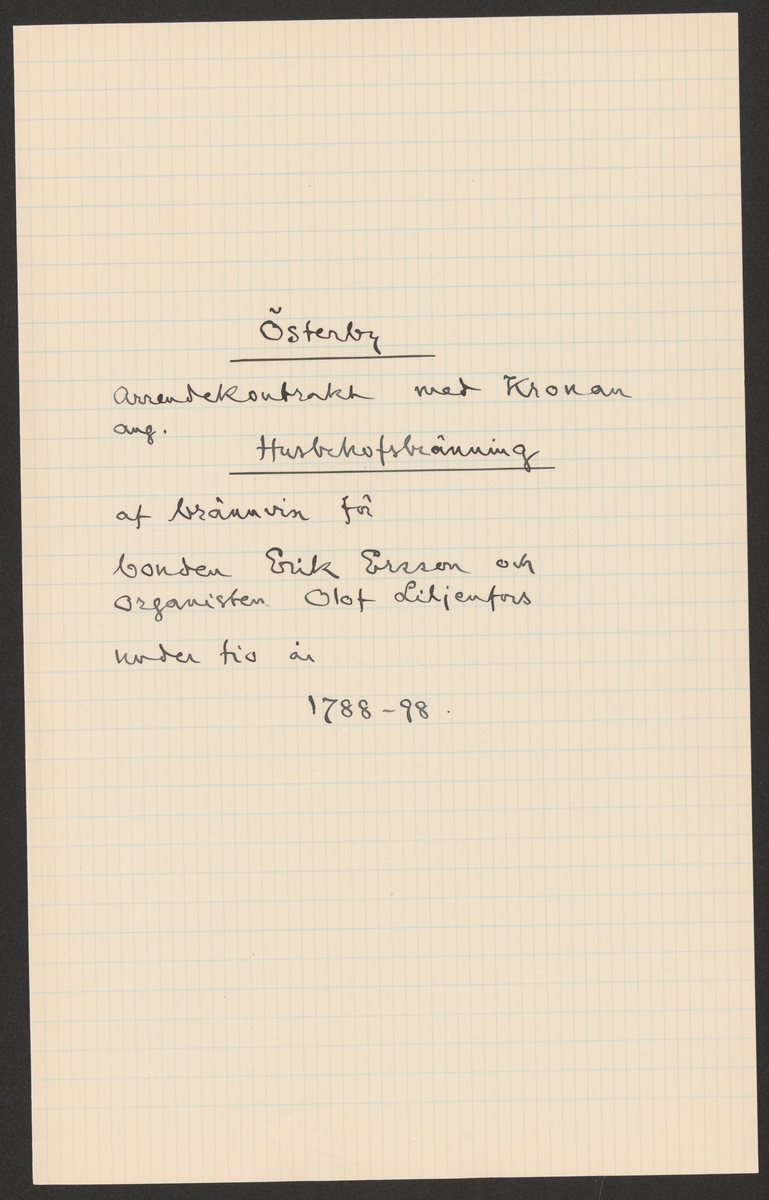 Österby
Arrendekontrakt med Kronan
ang.
Husbehofsbränning
af brännvin för
bonden Erik Ersson och
organisten Olof Liljenfors
under tio år
1788-98.